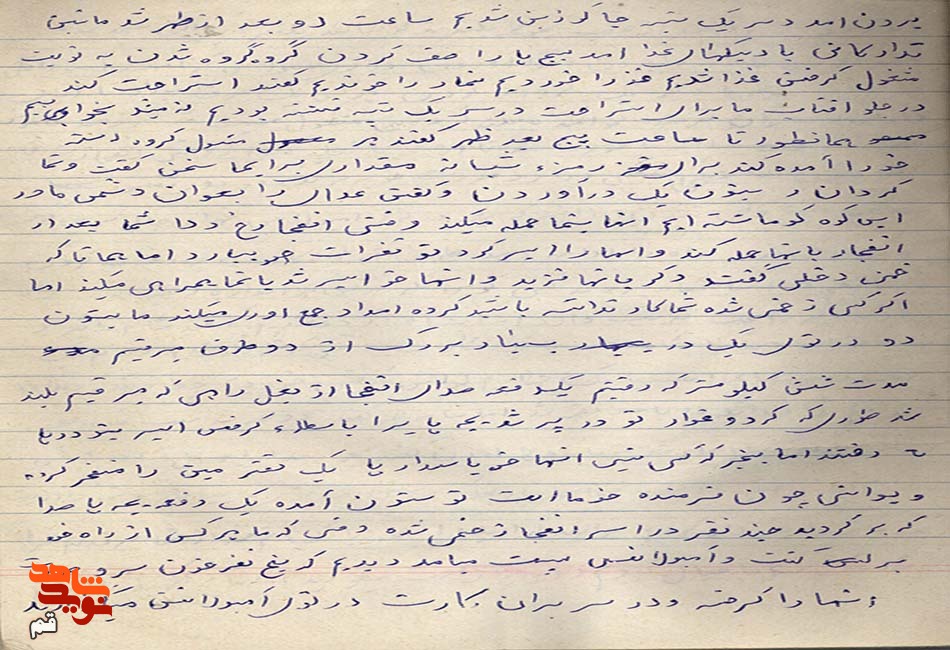 بردن آمد در سر یک تپه جاگزین شدیم ساعت دو بعد از ظهر شد ماشین
تدارکاتی با دیگهای غذا آمد بچه ها را صف کردن گروه گروه شدن به نوبت
مشغول گرفتن غذا شدیم غذا را خوردیم نماز را خوندیم گفتند استراحت کنید
در جلو آفتاب ما برای استراحت در سر یک تپه نشسته بودیم نمیشد بخوابیم
همانطور تا ساعت پنج بعد ظهر گفتند مسئول گروه دسته
خود را آماده کند برای رزم شبانه مقداری برایما سخن گفت و تما
گردان در ستون یک درآوردن و گفتن عدل را بعنوان دشمن ما در
این کوه گو ماشته ایم اینها بشما حمله میکنند وقتی انفجار رخ داد شما بعد از
انفجار باینها حمله کنید و اینها را اسیر کرد تو نفرات خود بیارد اما همانا که
خمن دخلی گفتند دگر بانها نزنید و اینها خو اسیر شد باشما همراهی میکند اما
اگر کسی زخمی شده شما کار نداشته باشید گروه امداد جمع آوری میکند ما بستون
دو در توی یک در بسیار بزرگ از دو طرف میرفتیم
مدت شش کیلومتر که رفتیم یک دفعه صدای انفجار از بغل راهی که میرفتیم بلند
شد طوری که گرد و غبار تو در پر شد بچه ها برا باصطلاء گرفتن اسیر میدودن
رفتند اما بیخبر که کسی نیس اینها خو پاسدار با یک نفر مین را منفجر کرده
و یواشی چون فرمنده خدماست تو ستون آمده یک دفعه بچه ها صدا
که برگردید چند نفر در اسر انفجار زخمی شده وقتی که ما برگس از راه خو
برگشت و آمبولانسی بیست میامد دیدیم که پنج نفر خون سر و
شما را گرفته و در سر برانکارت در توی آمبولانس
نوید شاهد
قم